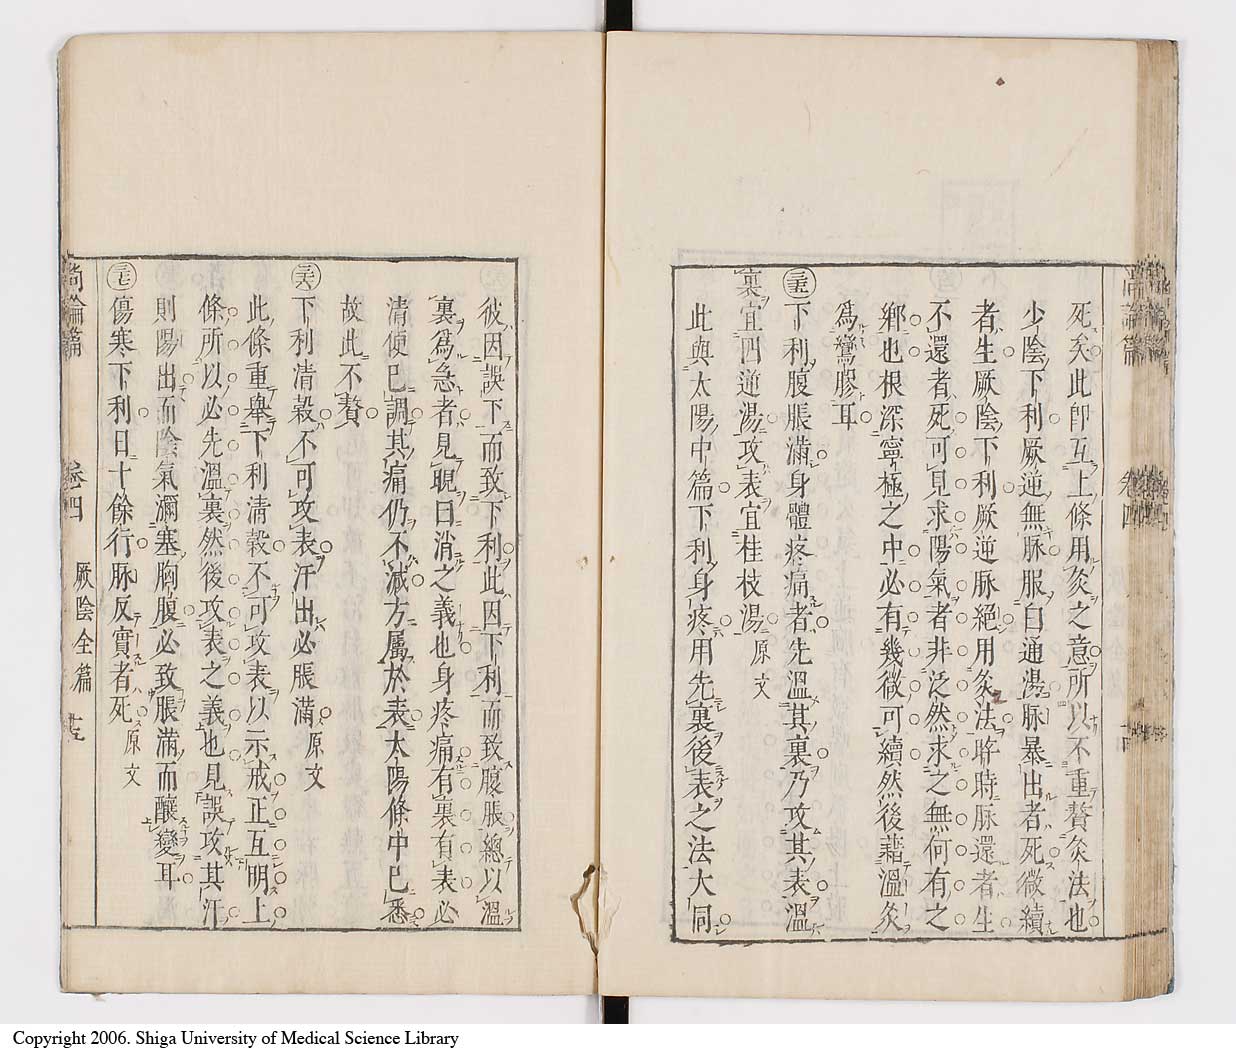 死矣此卽互上條用灸之意所以不重贅灸法也
少陰下利厥逆無脉服白通湯脉暴出者死微續
者生厥陰下利厥逆脉絕用灸法晬時脉還者生
不還者死可見求陽氣者非泛然求之無何有之
鄉也根深寧極之中必有幾微可續然後藉溫灸
爲鸞膠耳
三五下利腹脹滿身體疼痛者先溫其裏乃攻其表溫
裏宜四逆湯攻表宜桂枝湯 原文
此與太陽中篇下利身疼用先裏後表之法大同
尚論篇 卷四
彼因誤下而致下利此因下利而致腹脹總以溫
裏爲急者見晛曰消之義也身疼痛有裏有表必
清便已調其痛仍不減方屬於表太陽條中已悉
故此不贅
三六下利清穀不可攻表汗出必脹滿 原文
此條重舉下利清穀不可攻表以示戒正互明上
條所以必先溫裏然後攻表之義也見誤攻其汗
則陽出而陰氣瀰塞胸腹必致脹滿而釀變耳
三七傷寒下利日十餘行脉反實者死 原文
尚論篇 卷四 厥陰全篇
Copyright 2006. Shiga University of Medical Science Library